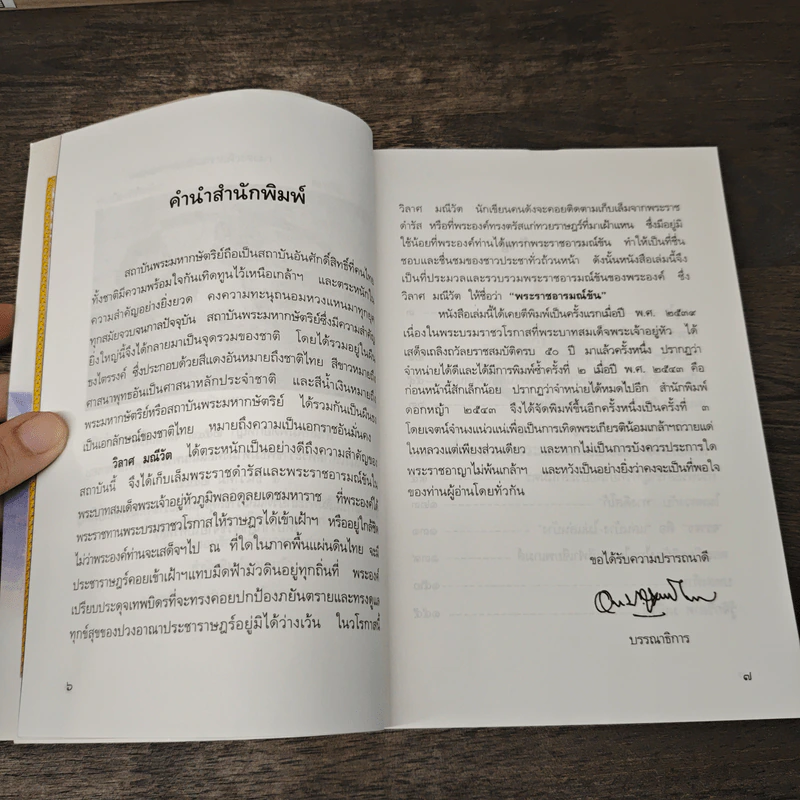 คำนำสำนักพิมพ์
สถาบันพระมหากษัตริย์ถือเป็นสถาบันอันศักดิ์สิทธิ์ที่คนไทย
ทั้งชาติมีความพร้อมใจกันเทิดทูนไว้เหนือเกล้าฯ และตระหนักใน
ความสำคัญอย่างยิ่งยวด คงความทะนุถนอมหวงแหนมาทุกยุค
ทุกสมัยจวบจนกาลปัจจุบัน สถาบันพระมหากษัตริย์ซึ่งมีความสำคัญ
ยิ่งใหญ่นี้จึงได้กลายมาเป็นจุดรวมของชาติ โดยได้รวมอยู่ในผืน
ธงไตรรงค์ ซึ่งประกอบด้วยสีแดงอันหมายถึงชาติไทย สีขาวหมายถึง
ศาสนาพุทธอันเป็นศาสนาหลักประจำชาติ และสีน้ำเงินหมายถึง
พระมหากษัตริย์หรือสถาบันพระมหากษัตริย์ ได้รวมกันเป็นผืนธง
เป็นเอกลักษณ์ของชาติไทย หมายถึงความเป็นเอกราชอันมั่นคง
วิลาศ มณีวัต ได้ตระหนักเป็นอย่างดีถึงความสำคัญของ
สถาบันนี้ จึงได้เก็บเล็มพระราชดำรัสและพระราชอารมณ์ขันใน
พระบาทสมเด็จพระเจ้าอยู่หัวภูมิพลอดุลยเดชมหาราช ที่พระองค์ได้
พระราชทานพระบรมราชวโรกาสให้ราษฎรได้เข้าเฝ้าฯ หรืออยู่ใกล้ชิด
ไม่ว่าพระองค์ท่านจะเสด็จฯไป ณ ที่ใดในภาคพื้นแผ่นดินไทย จะมี
ประชาราษฎร์คอยเข้าเฝ้าฯแทบมืดฟ้ามัวดินอยู่ทุกถิ่นที่ พระองค์
เปรียบประดุจเทพบิดรที่จะทรงคอยปกป้องภยันตรายและทรงดูแล
ทุกข์สุขของปวงอาณาประชาราษฎร์อยู่มิได้ว่างเว้น ในวโรกาสนี้
๖
วิลาศ มณีวัต นักเขียนคนดังจะคอยติดตามเก็บเล็มจากพระราช
ดำรัส หรือที่พระองค์ทรงตรัสแก่ทวยราษฎร์ที่มาเฝ้าแหน ซึ่งมีอยู่มิ
ใช้น้อยที่พระองค์ท่านได้แทรกพระราชอารมณ์ขัน ทำให้เป็นที่ชื่น
ชอบและชื่นชมของชาวประชาทั่วถ้วนหน้า ดังนั้นหนังสือเล่มนี้จึง
เป็นที่ประมวลและรวบรวมพระราชอารมณ์ขันของพระองค์ ซึ่ง
วิลาศ มณีวัต ให้ชื่อว่า “พระราชอารมณ์ขัน”
หนังสือเล่มนี้ได้เคยตีพิมพ์เป็นครั้งแรกเมื่อปี พ.ศ. ๒๕๓๙
เนื่องในพระบรมราชวโรกาสที่พระบาทสมเด็จพระเจ้าอยู่หัว ได้
เสด็จเถลิงถวัลยราชสมบัติครบ ๕๐ ปี มาแล้วครั้งหนึ่ง ปรากฏว่า
จำหน่ายได้ดีและได้มีการพิมพ์ซ้ำครั้งที่ ๒ เมื่อปี พ.ศ. ๒๕๔๓ คือ
ก่อนหน้านี้สักเล็กน้อย ปรากฏว่าจำหน่ายได้หมดไปอีก สำนักพิมพ์
ดอกหญ้า ๒๕๔๓ จึงได้จัดพิมพ์ขึ้นอีกครั้งหนึ่งเป็นครั้งที่ ๓
โดยเจตน์จำนงแน่วแน่เพื่อเป็นการเทิดพระเกียรติน้อมเกล้าฯถวายแด่
ในหลวงแต่เพียงส่วนเดียว และหากไม่เป็นการบังควรประการใด
พระราชอาญาไม่พ้นเกล้าฯ และหวังเป็นอย่างยิ่งว่าคงจะเป็นที่พอใจ
ของท่านผู้อ่านโดยทั่วกัน
ขอได้รับความปรารถนาดี
บรรณาธิการ
๗